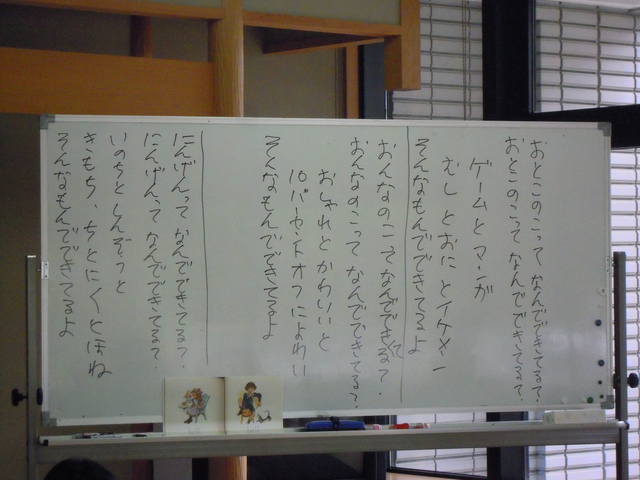 おとこのこって なんでできてる？
おとこのこって なんでできてる？
ゲームとマンガ
むしとおにとイケメン
そんなもんでできてるよ
おんなのこってなんでできてる？
おんなのこって なんでできてる？
おしゃれとかわいいと
10パーセントオフによわい
そんなもんでできてるよ
にんげんって なんでできてる？
にんげんって なんでできてる？
いのちとしんぞうと
きもち、ちとにくとほね
そんなもんでできてるよ